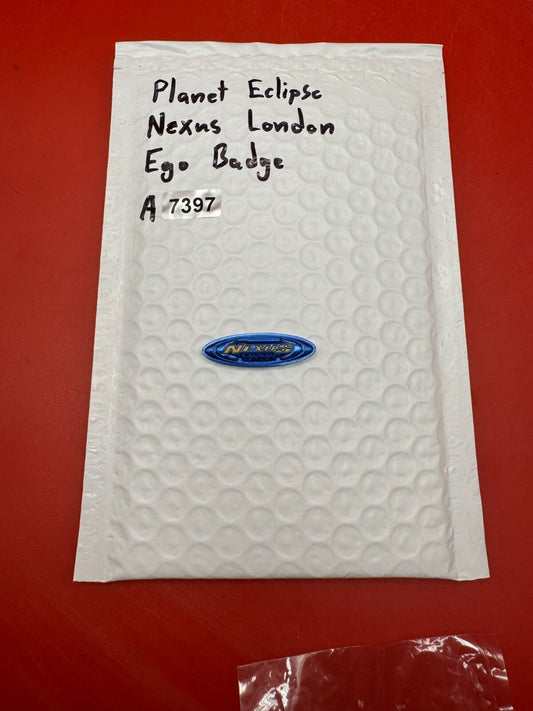 Planet Eclipse
Nexus London
Ego Badge
A 7397
NEXUS
LONDON